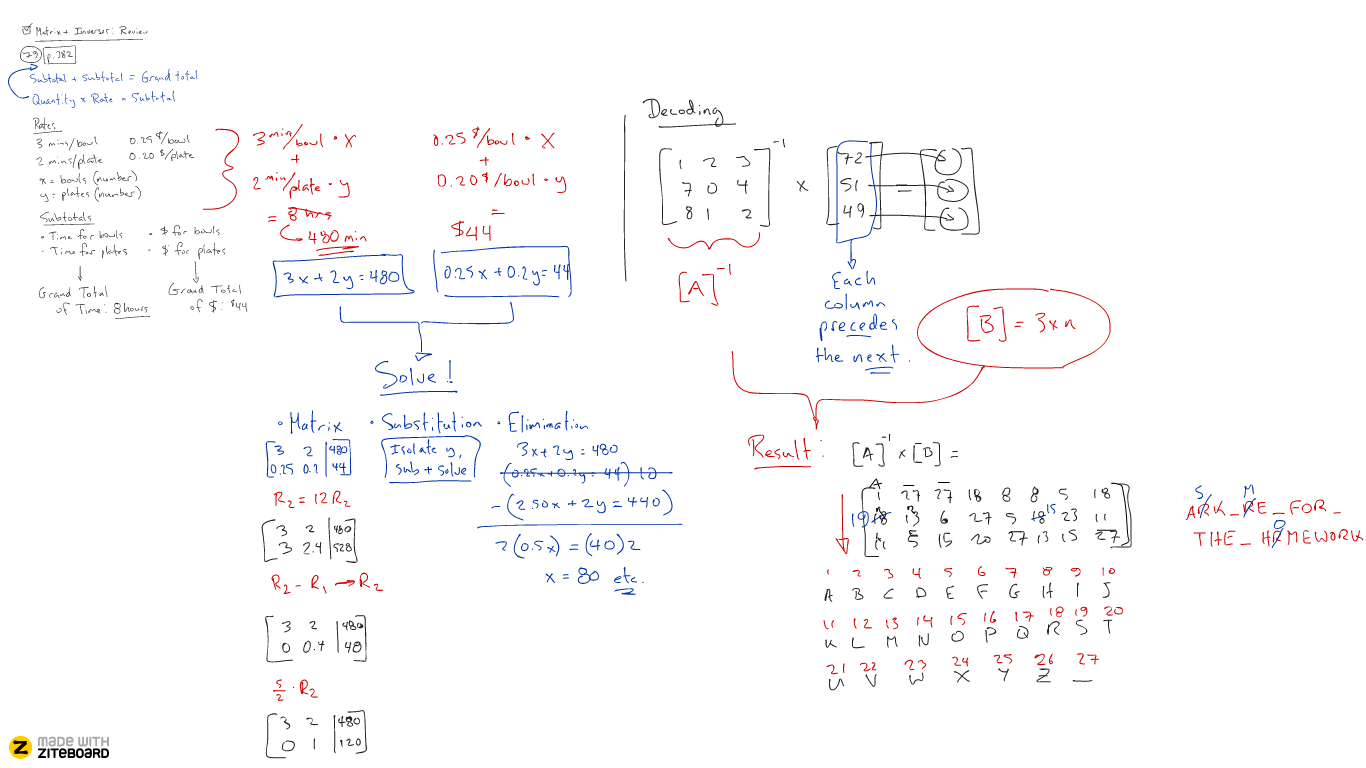 Matrix + Inverses: Review
79 p.382
Subtotal + Subtotal = Grand total
Quantity × Rate = Subtotal
Rates
3 mins/bowl 0.25 $/bowl
2 mins/plate 0.20 $/plate
x = bowls (number)
y = plates (number)
Subtotals
• Time for bowls • $ for bowls
• Time for plates - $ for plates
Grand Total
of Time: 8 hours
Grand Total
of $: $44
3 min/bowl • x
+
2 min/plate • y
= 8 hrs
480 min
3x + 2y = 480
0.25 $/bowl • x
+
0.20 $/bowl • y
=
$44
0.25x + 0.2y = 44
Solve!
• Matrix • Substitution • Elimination
3 2 | 480
0.25 0.2 | 44
R2 = 12R2
3 2 | 480
3 2.4 | 528
R2 - R1 → R2
3 2 | 480
0 0.4 | 48
5/2 • R2
3 2 | 480
0 1 | 120
Isolate y,
sub + solve
3x + 2y = 480
(0.25x + 0.2y = 44) 10
-(2.50x + 2y = 440)
2(0.5x) = (40)2
x = 80 etc.
Decoding
[1 2 3
7 0 4
8 1 2]⁻¹ × [72
51
49] = [ ]
[A]⁻¹
Each
column
precedes
the next.
[B] = 3 × n
Result:
[A]⁻¹ × [B] =
A
1 27 27 18 8 8 5 18
19 18 13 6 27 5 18 15 23 11
11 5 15 20 27 13 15 27
S M
ARK_RE_FOR_
O
THE_HRMEWORK
1 2 3 4 5 6 7 8 9 10
A B C D E F G H I J
11 12 13 14 15 16 17 18 19 20
K L M N O P Q R S T
21 22 23 24 25 26 27
U V W X Y Z _
MADE WITH
ZITEBOARD